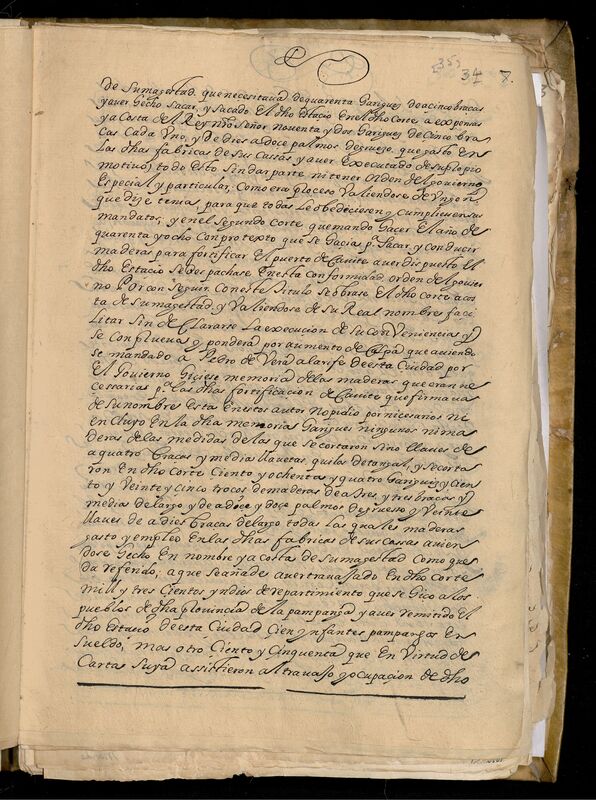 34 8.
de Sumagestad, que necesitava de quarenta Gariguez deacinco bracas
y aver Hecho Sacar, y Sacado El dho Estacio En el dho Corte a expensas
ya Costa del Rey nro Señor noventa y dos Gariguez de Cinco bra
cas Cada Uno, y de dies adoce palmos degruezo, que gasto En
las dhas fabricas de sus Cassas, y aver Executado de su propio
motivo, todo Esto Sin dar parte ni tener Orden del govierno
Especial y particular, Como era preciso Valiendose de Un gen
que dije tenia, para que todos le obedeciesen y Cumpliesen sus
mandatos; y en el Segundo Corte que mando Hacer El año de
quarenta y ocho Con protexto que se Hacia pa Sacar, y Conducir
maderas para fortificar El puerto de Cavite aver dispuesto El
dho Estacio se despachase En esta Conformidad, orden del govier
no Por Con Seguir Con este titulo se obrase El dho Corte a cos
ta de Sumagestad, y Valiendose de su Real nombre faci
litar Sin declararse La execucion de su Con Veniencias y
Se Conplueva y pondera por aumento de Culpa que aviendo
se mandado a Pedro de Vera alarife de esta Ciudad por
El govierno Hiciese memoria de las maderas que eran ne
cessarias pa las dhas fortificacion de Cavite que firmava
de su nombre, Esta En estos autos No pidio por nicesarios ni
En Cluyo En la dha memoria Gariguez ningunos ni ma
deras de las medidas de las que se Cortaron Sino Llaves de
a quatro bracas y media llavetas, quilos de tangal, y se corta
ron En dho Corte Ciento y ochenta y quatro Gariguez y Cien
to y Veinte y cinco trocos de maderas de a tres, y tres bracas y
media de largo y de a doce y doce palmos degruesso y Veinte
llaves de a dies bracas de largo todas las quales maderas
gasto y empleo En las dhas fabricas de sus cassas avien
dose Hecho En nombre ya costa de Sumagestad Como que
da referido; a que se añade aver travajado En dho Corte
mill y tres Cientos yndios de repartimiento que se Hico a los
pueblos de dha provincia de la pampanga y aver remitido El
dho Estacio de esta Ciudad Cien ynfantes pampangos En
Sueldo, mas otro Ciento y Cinquenta que En Virtud de
Cartas Suya assistieron al travajo y ocupacion de dho